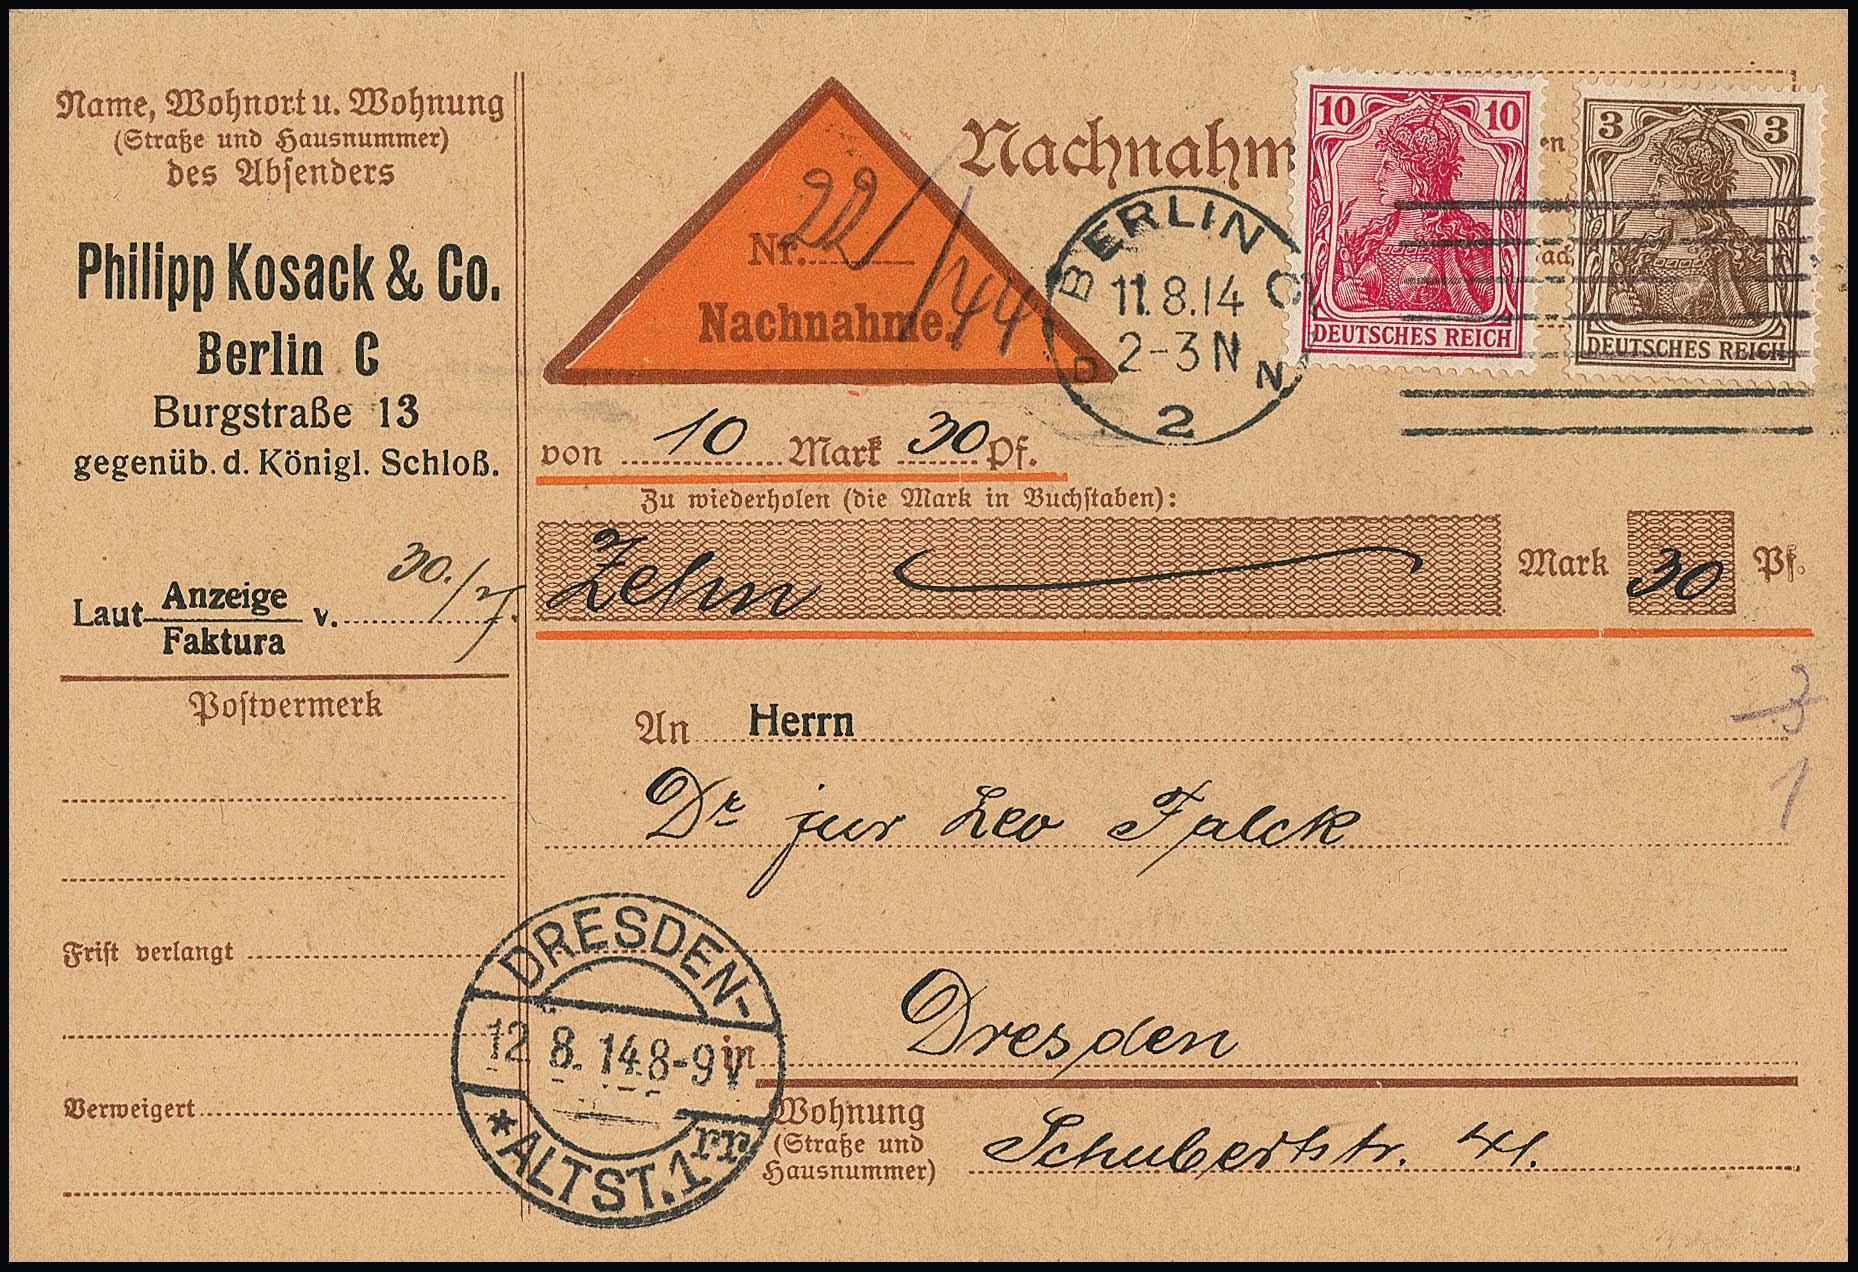 Name, Wohnort u. Wohnung
(Straße und Hausnummer)
des Absenders
Philipp Kosack & Co.
Berlin C
Burgstraße 13
gegenüb. d. Königl. Schloß.
Laut Anzeige v. 30./7.
Faktura
Postvermerk
Frist verlangt
Verweigert
Nachnahm
Nr. 22/144
Nachnahme.
10 10
DEUTSCHES REICH
3 3
DEUTSCHES REICH
BERLIN C
11.8.14
2-3 N
D N
2
von 10 Mark 30 Pf.
Zu wiederholen (die Mark in Buchstaben):
Zehn Mark 30 Pf.
An Herrn
3
1
Dr jur Leo Falck
in Dresden
Wohnung
(Straße und
Hausnummer)
Schubertstr. 41.
DRESDEN-
12.8.14 8-9 V
*ALTST. 1 rr